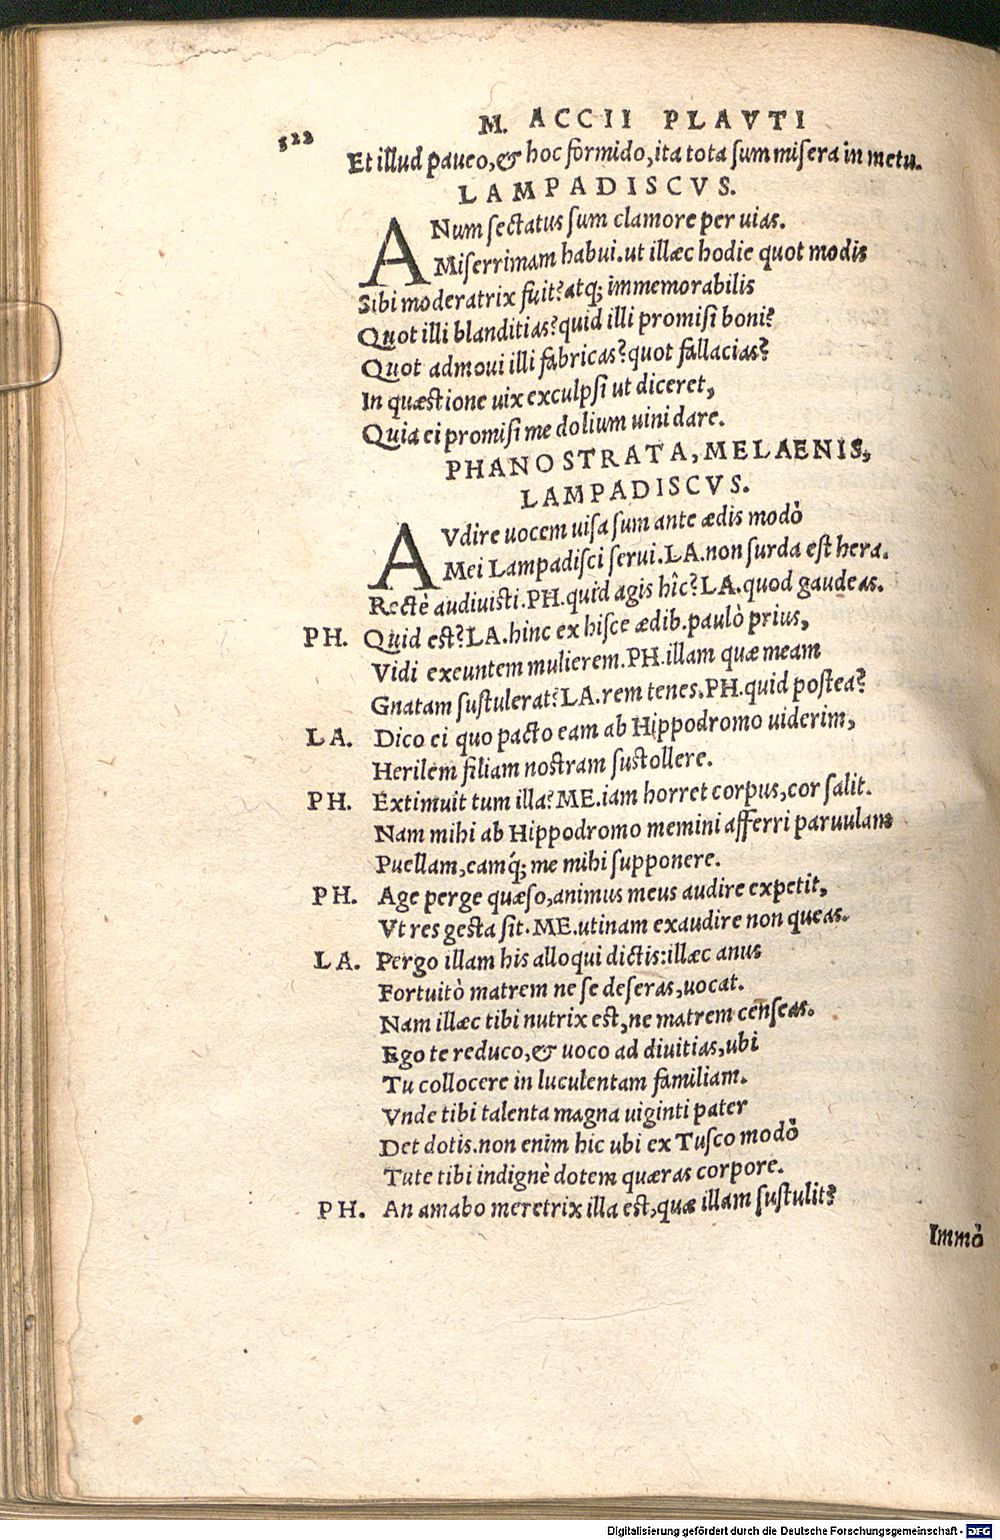 522 M. ACCII PLAVTI
Et illud paueo,& hoc formido,ita tota sum misera in metu.
LAMPADISCVS.
ANum sectatus sum clamore per uias.
Miserrimam habui.ut illæc hodie quot modis
Sibi moderatrix fuit?atq; immemorabilis
Quot illi blanditias?quid illi promisi boni?
Quot admoui illi fabricas?quot fallacias?
In quæstione uix exculpsi ut diceret,
Quia ei promisi me dolium uini dare.
PHANOSTRATA, MELAENIS,
LAMPADISCVS.
AVdire uocem uisa sum ante ædis modò
Mei Lampadisci serui.LA.non surda est hera.
Rectè audiuisti.PH.quid agis hîc?LA.quod gaudeas.
PH. Quid est?LA.hinc ex hisce ædib.paulò prius,
Vidi exeuntem mulierem.PH.illam quæ meam
Gnatam sustulerat?LA.rem tenes.PH.quid postea?
LA. Dico ei quo pacto eam ab Hippodromo uiderim,
Herilem filiam nostram sustollere.
PH. Extimuit tum illa?ME.iam horret corpus,cor salit.
Nam mihi ab Hippodromo memini afferri paruulam
Puellam,eamq́; me mihi supponere.
PH. Age perge quæso,animus meus audire expetit,
Vt res gesta sit.ME.utinam exaudire non queas.
LA. Pergo illam his alloqui dictis:illæc anus
Fortuitò matrem ne se deseras,uocat.
Nam illæc tibi nutrix est,ne matrem censeas.
Ego te reduco,& uoco ad diuitias,ubi
Tu collocere in luculentam familiam.
Vnde tibi talenta magna uiginti pater
Det dotis.non enim hic ubi ex Tusco modò
Tute tibi indignè dotem quæras corpore.
PH. An amabo meretrix illa est,quæ illam sustulit?
Immò
Digitalisierung gefördert durch die Deutsche Forschungsgemeinschaft - DFG